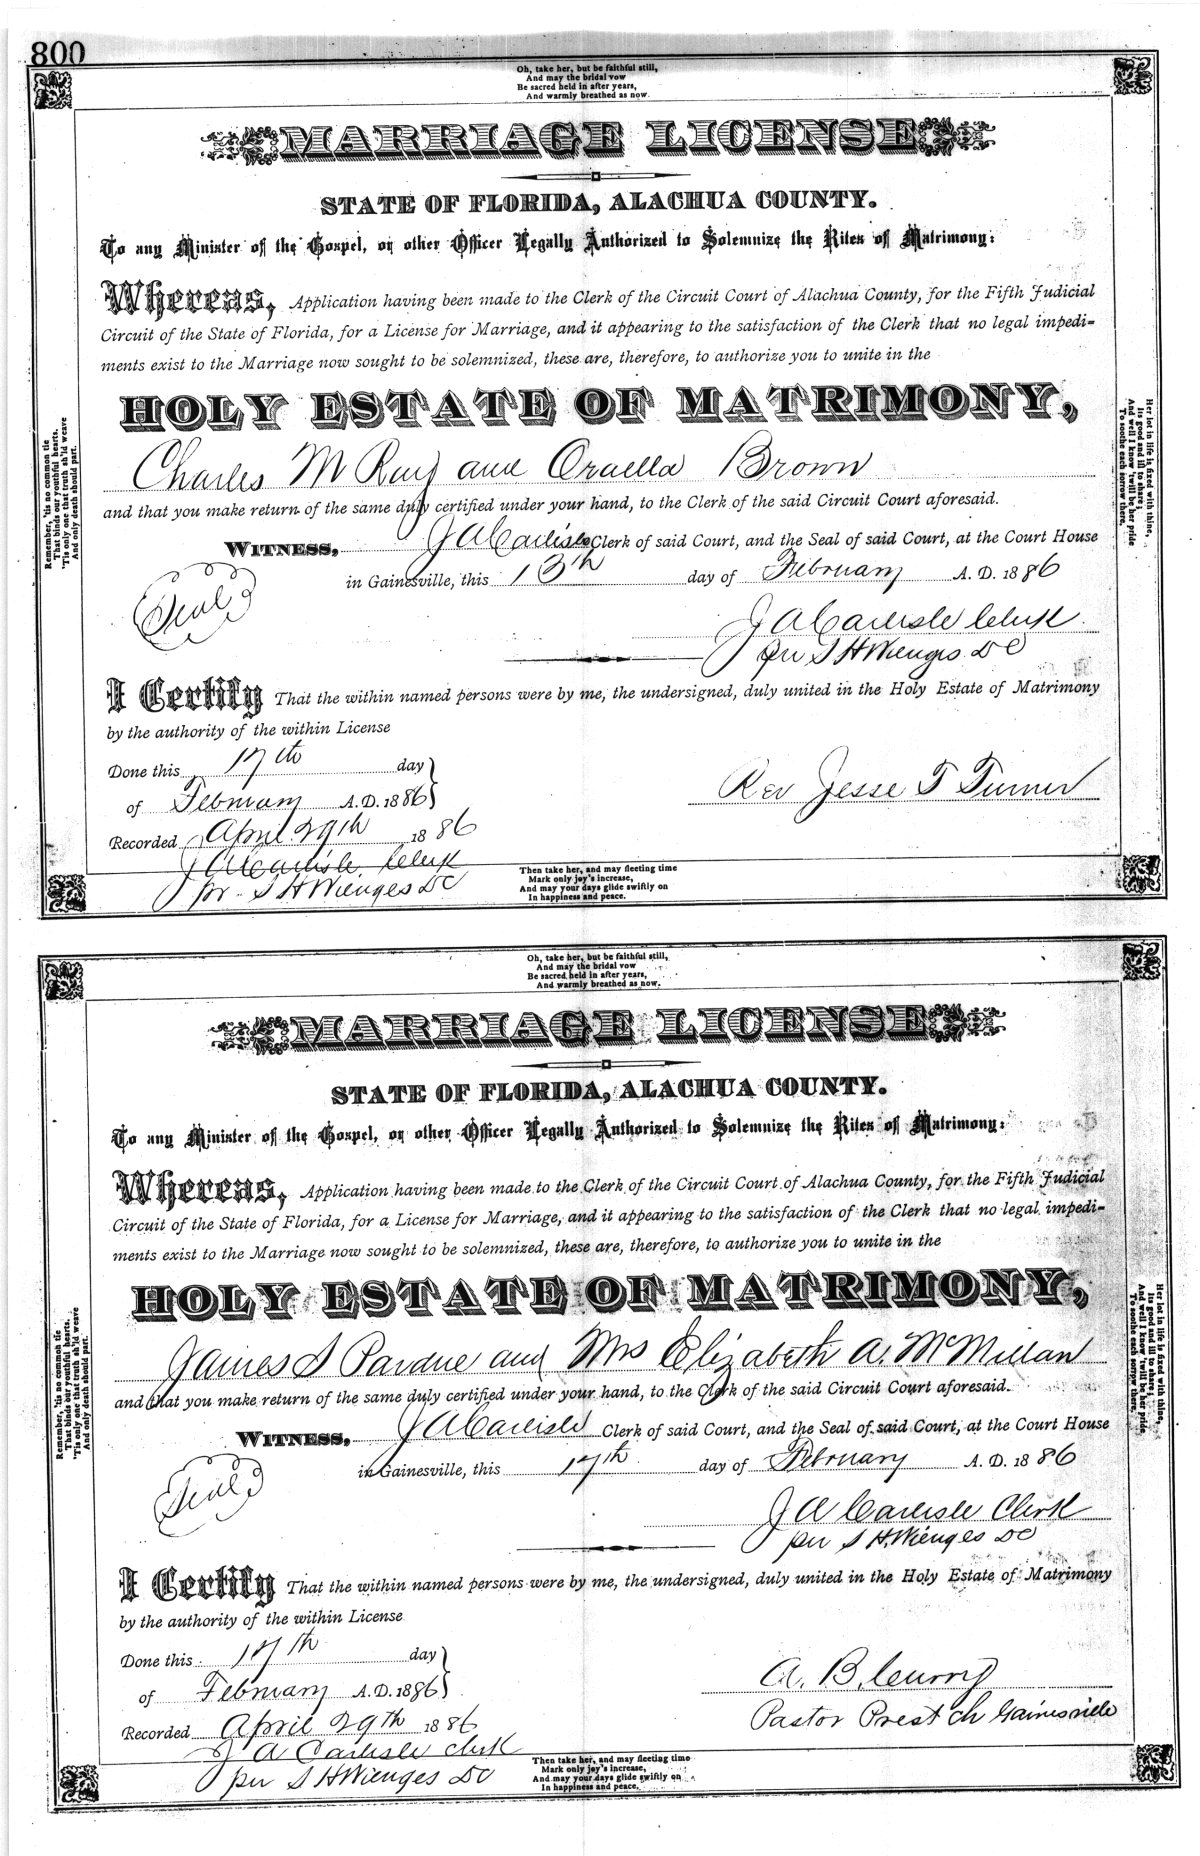 800
Oh, take her, but be faithful still,
And may the bridal vow
Be sacred held in after years,
And warmly breathed as now.
MARRIAGE LICENSE
STATE OF FLORIDA, ALACHUA COUNTY.
To any Minister of the Gospel, or other Officer Legally Authorized to Solemnize the Rites of Matrimony:
Whereas, Application having been made to the Clerk of the Circuit Court of Alachua County, for the Fifth Judicial
Circuit of the State of Florida, for a License for Marriage, and it appearing to the satisfaction of the Clerk that no legal impedi-
ments exist to the Marriage now sought to be solemnized, these are, therefore, to authorize you to unite in the
HOLY ESTATE OF MATRIMONY,
Charles M Ray and Oraella Brown
and that you make return of the same duly certified under your hand, to the Clerk of the said Circuit Court aforesaid.
WITNESS, J A Carlisle Clerk of said Court, and the Seal of said Court, at the Court House
in Gainesville, this 13th day of February A. D. 1886
Seal
J A Carlisle Clerk
per S H Wienges DC
I Certify That the within named persons were by me, the undersigned, duly united in the Holy Estate of Matrimony
by the authority of the within License
Done this 17th day
of February A.D. 1886
Rev Jesse T Turner
Recorded April 29th 1886
J A Carlisle Clerk
pr S H Wienges DC
Remember, 'tis no common tie
That binds our youthful hearts,
'Tis only one that truth sh'ld weave
And only death should part.
Her lot in life is fixed with thine,
Its good and ill to share;
And well I know 'twill be her pride
To soothe each sorrow there.
Then take her, and may fleeting time
Mark only joy's increase,
And may your days glide swiftly on
In happiness and peace.
Oh, take her, but be faithful still,
And may the bridal vow
Be sacred held in after years,
And warmly breathed as now.
MARRIAGE LICENSE
STATE OF FLORIDA, ALACHUA COUNTY.
To any Minister of the Gospel, or other Officer Legally Authorized to Solemnize the Rites of Matrimony:
Whereas, Application having been made to the Clerk of the Circuit Court of Alachua County, for the Fifth Judicial
Circuit of the State of Florida, for a License for Marriage, and it appearing to the satisfaction of the Clerk that no legal impedi-
ments exist to the Marriage now sought to be solemnized, these are, therefore, to authorize you to unite in the
HOLY ESTATE OF MATRIMONY,
James S Pardue and Mrs Elizabeth A. McMillan
and that you make return of the same duly certified under your hand, to the Clerk of the said Circuit Court aforesaid.
WITNESS, J A Carlisle Clerk of said Court, and the Seal of said Court, at the Court House
in Gainesville, this 17th day of February A. D. 1886
Seal
J A Carlisle Clerk
per S H. Wienges DC
I Certify That the within named persons were by me, the undersigned, duly united in the Holy Estate of Matrimony
by the authority of the within License
Done this 17th day
of February A.D. 1886
A. B. Curry
Pastor Prest Ch Gainesville
Recorded April 29th 1886
J A Carlisle Clerk
per S H Wienges DC
Remember, 'tis no common tie
That binds our youthful hearts,
'Tis only one that truth sh'ld weave
And only death should part.
Her lot in life is fixed with thine,
Its good and ill to share;
And well I know 'twill be her pride
To soothe each sorrow there.
Then take her, and may fleeting time
Mark only joy's increase,
And may your days glide swiftly on
In happiness and peace.